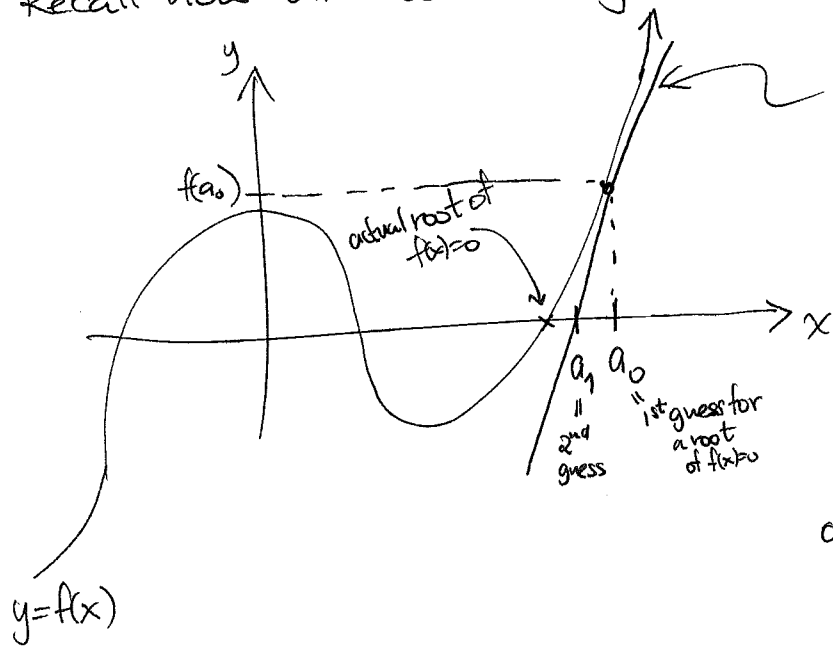 Recall how
y
f(a₀)
actual root of
f(x)=0
x
a₁
a₀
=
2nd
guess
=
1st guess for
a root
of f(x)=0
y=f(x)